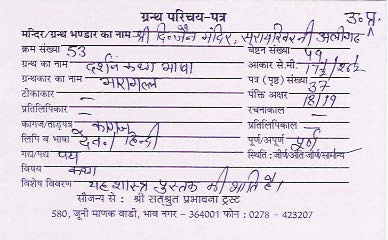 ग्रन्थ परिचय-पत्र
उ. प्र.
मन्दिर/ग्रन्थ भण्डार का नाम श्री दि. जैन मंदिर, अलीगढ़
क्रम संख्या 53 वेष्टन संख्या 49
ग्रन्थ का नाम दर्शन कथा भाषा आकार से.मी.
ग्रन्थकार का नाम भारामल्ल पत्र (पृष्ठ) संख्या 37
टीकाकार — पंक्ति अक्षर 18/19
प्रतिलिपिकार — रचनाकाल —
कागज/ताड़पत्र कागज प्रतिलिपिकाल —
लिपि व भाषा देव. / हिन्दी पूर्ण/अपूर्ण पूर्ण
गद्य/पद्य पद्य स्थिति : जीर्ण/अति जीर्ण/सामान्य
विषय कथा
विशेष विवरण यह शास्त्र पुस्तक की भांति है।
सौजन्य से : श्री सत्श्रुत प्रभावना ट्रस्ट
580, जूनी माणक वाडी, भाव नगर - 364001 फोन : 0278 - 423207